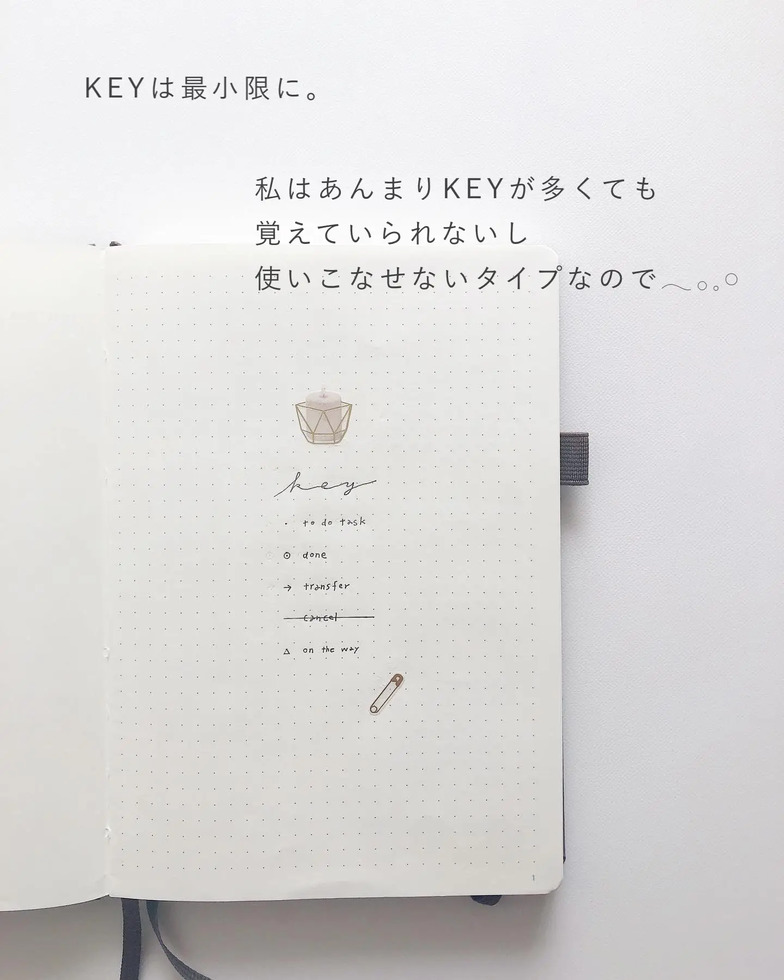 KEYは最小限に。
私はあんまりKEYが多くても
覚えていられないし
使いこなせないタイプなので
key
· to do task
⊙ done
→ transfer
cancel
△ on the way
1